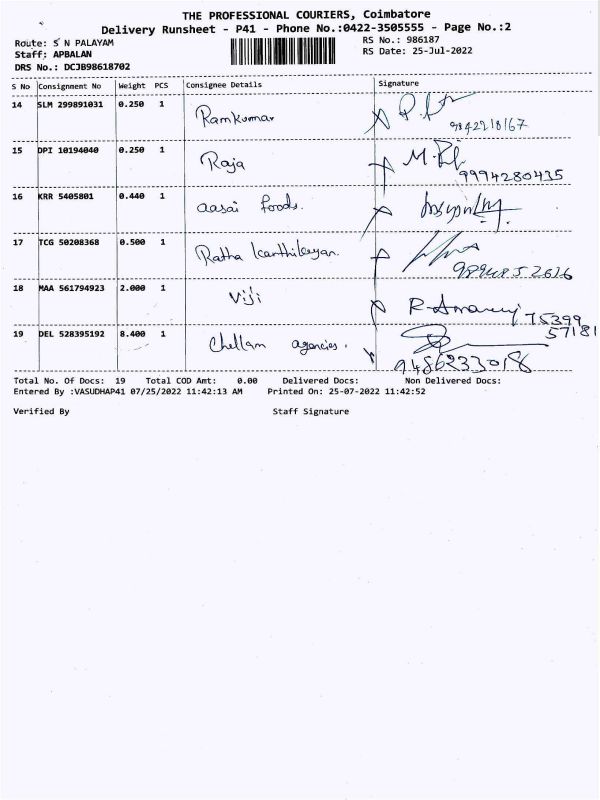 THE PROFESSIONAL COURIERS, Coimbatore
Delivery Runsheet - P41 - Phone No.:0422-3505555 - Page No.:2
Route: S N PALAYAM RS No.: 986187
Staff: APBALAN RS Date: 25-Jul-2022
DRS No.: DCJB98618702
S No Consignment No Weight PCS Consignee Details Signature
14 SLM 299891031 0.250 1 Ramkumar
9842218167
15 DPI 10194040 0.250 1 Raja
9994280435
16 KRR 5405801 0.440 1 aasai foods.
17 TCG 50208368 0.500 1 Ratha Karthikeyan.
18 MAA 561794923 2.000 1 Viji
75399
57181
19 DEL 528395192 8.400 1 Chellam agencies.
9486233018
Total No. Of Docs: 19 Total COD Amt: 0.00 Delivered Docs: Non Delivered Docs:
Entered By :VASUDHAP41 07/25/2022 11:42:13 AM Printed On: 25-07-2022 11:42:52
Verified By Staff Signature